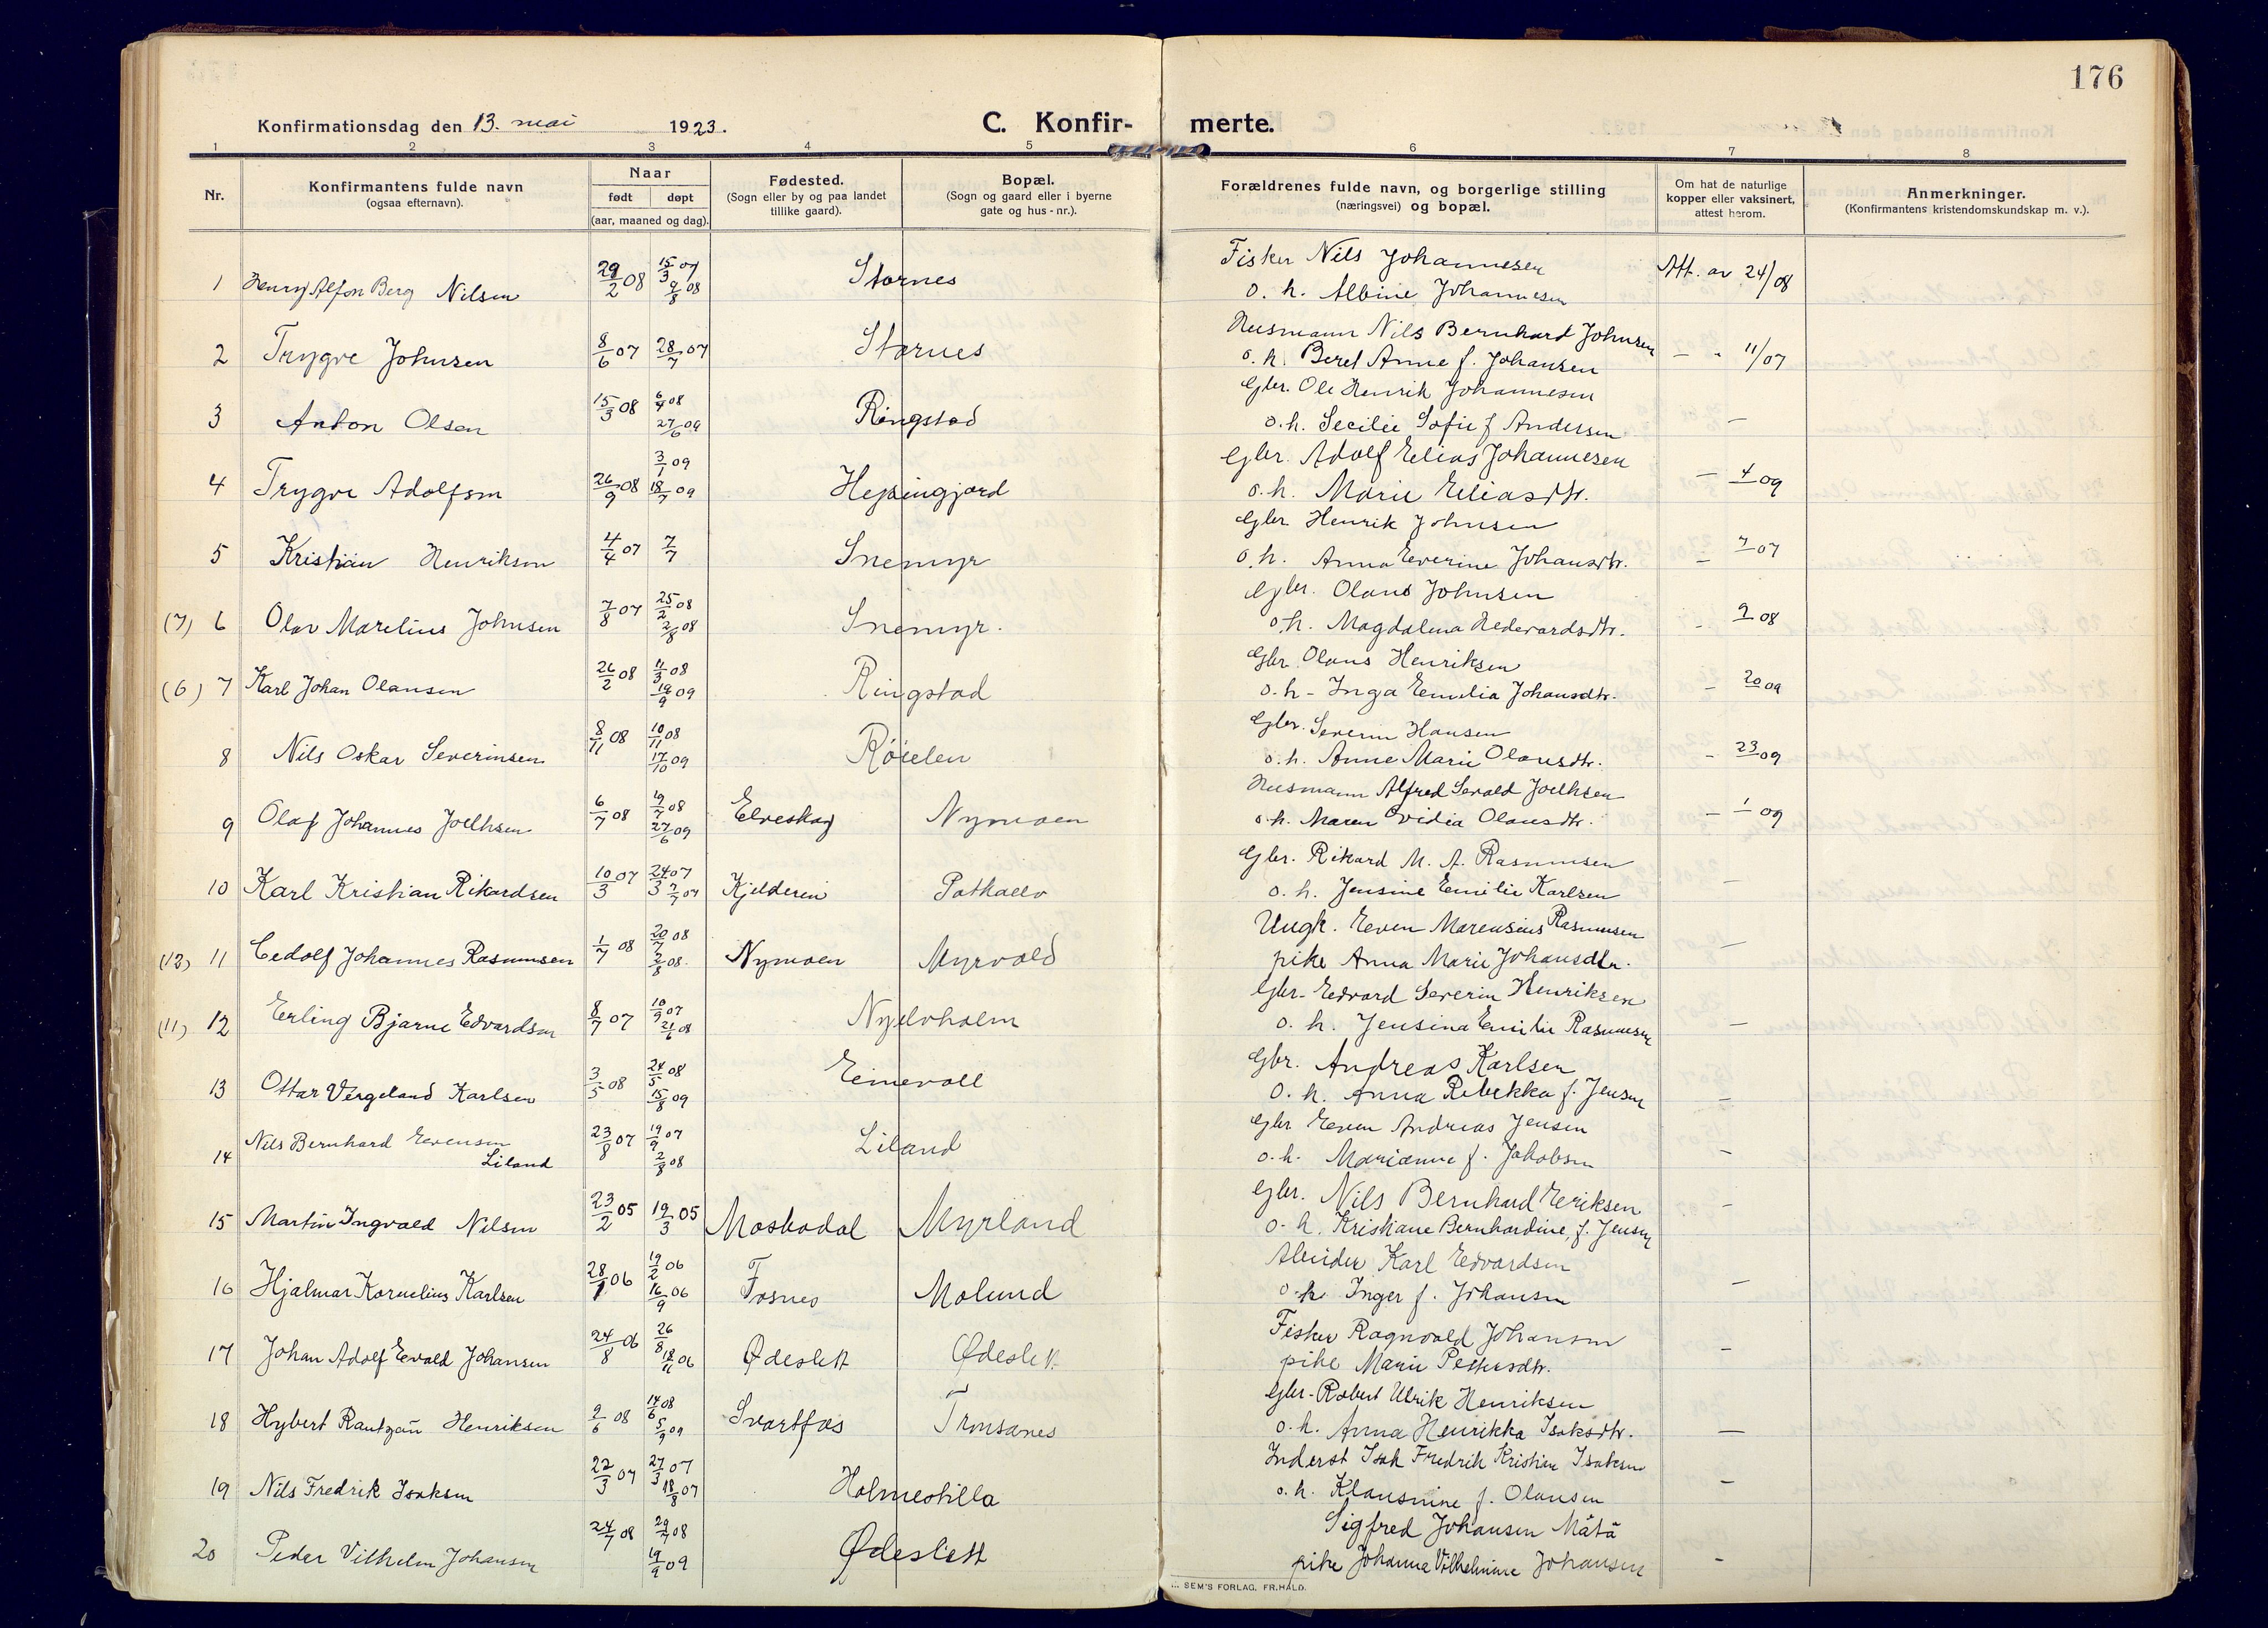 176
Konfirmationsdag den 13. mai 1923.
C. Konfir- merte.
1 2 3 4 5 6 7 8
Nr.
Konfirmantens fulde navn
(ogsaa efternavn).
Naar
født døpt
(aar, maaned og dag).
Fødested.
(Sogn eller by og paa landet
tillike gaard).
Bopæl.
(Sogn og gaard eller i byerne
gate og hus-nr.).
Forældrenes fulde navn, og borgerlige stilling
(næringsvei) og bopæl.
Om hat de naturlige
kopper eller vaksinert,
attest herom.
Anmerkninger.
(Konfirmantens kristendomskundskap m. v.).
1 Henry Alfon Berg Nilsen 29/2 08 15/3 07 9/8 08 Stornes Fisker Nils Johannesen Att. av 24/08
o. h. Albine Johannesen
2 Trygve Johnsen 8/6 07 28/7 07 Stornes Husmann Nils Bernhard Johnsen — " 11/07
o. h. Beret Anne f. Johansen
3 Anton Olsen 15/3 08 6/4 08 27/6 09 Ringstad Gbr. Ole Henrik Johannesen —
o. h. Secilie Sofie f Andersen
4 Trygve Adolfsen 26/9 08 3/1 09 18/7 09 Hepsingjord Gbr. Adolf Elias Johannesen — 4/09
o. h. Marie Eliasdtr.
5 Kristian Henriksen 4/4 07 7/7 Snemyr Gbr. Henrik Johnsen — 7/07
o. h. Anna Everine Johansdtr.
(7) 6 Olav Marelius Johnsen 7/8 07 25/2 08 2/8 08 Snemyr. Gbr. Olaus Johnsen - 9/08
o. h. Magdalena Hedevardsdtr.
(6) 7 Karl Johan Olausen 26/2 08 11/3 08 19/9 09 Ringstad Gbr Olaus Henriksen - 20/09
o. h - Inga Emilia Johansdtr.
8 Nils Oskar Severinsen 8/11 08 10/11 08 17/10 09 Røielen Gbr. Severin Hansen - 23/09
o. h. Anne Marie Olausdtr.
9 Olaf Johannes Joelhsen 6/7 08 19/7 08 27/6 09 Elveskog Nymoen Husmann Alfred Sevald Joelhsen — 1/09
o. h. Maren Ovidia Olausdtr.
10 Karl Kristian Rikardsen 10/3 07 24/3 07 7/7 07 Kjelderen Gbr. Rikard M. A. Rasmussen —
o. h. Jensine Emilie Karlsen
(12) 11 Cedolf Johannes Rasmussen 1/7 08 20/7 08 2/8 08. Nymoen Myrvold Ungk. Even Marensius Rasmussen —
pike Anna Marie Johansdtr.
(11) 12 Erling Bjarne Edvardsen 8/7 07 10/9 07 21/6 08 Nyelvholm Gbr. Edvard Severin Henriksen —
o. h. Jensina Emilie Rasmussen
13 Ottar Vergeland Karlsen 3/5 08 24/5 08 15/8 09 Einevoll Gbr. Andreas Karlsen -
O. h. Anna Rebekka f. Jensen
14 Nils Bernhard Evensen 23/8 07 19/9 07 2/8 08 Liland Gbr Even Andreas Jensen -
Liland o. h. Marianne f. Jakobsen
15 Martin Ingvald Nilsen 23/2 05 19/3 05 Moskodal Myrland Gbr. Nils Bernhard Eriksen -
o. h. Kristiane Bernhardine, f. Jensen
16 Hjalmar Kornelius Karlsen 28/1 06 19/2 06 16/9 06 Fosnes Molund Arbeider Karl Edvardsen —
o h Inger f. Johansen
17 Johan Adolf Evald Johansen 24/8 06 26/8 18/11 06 Ødeslett Ødeslett Fisker Ragnvald Johansen -
pike Marie Pettersdtr.
18 Hybert Rantzau Henriksen 9/6 08 14/6 08 5/9 09 Svartfos Tronsanes Gbr. Robert Ulrik Henriksen —
o. h. Anna Henrikka Isaksdtr.
19 Nils Fredrik Isaksen 22/3 07 27/3 07 18/8 07 Holmestilla Inderst Isak Fredrik Kristian Isaksen -
o. h. Klausmine f. Olausen
20 Peder Vilhelm Johansen 24/7 08 29/7 08 19/9 09 Ødeslett Sigfred Johansen Måtå -
pike Johanna Vilhelmine Johansen
SEM'S FORLAG, FR.HALD.